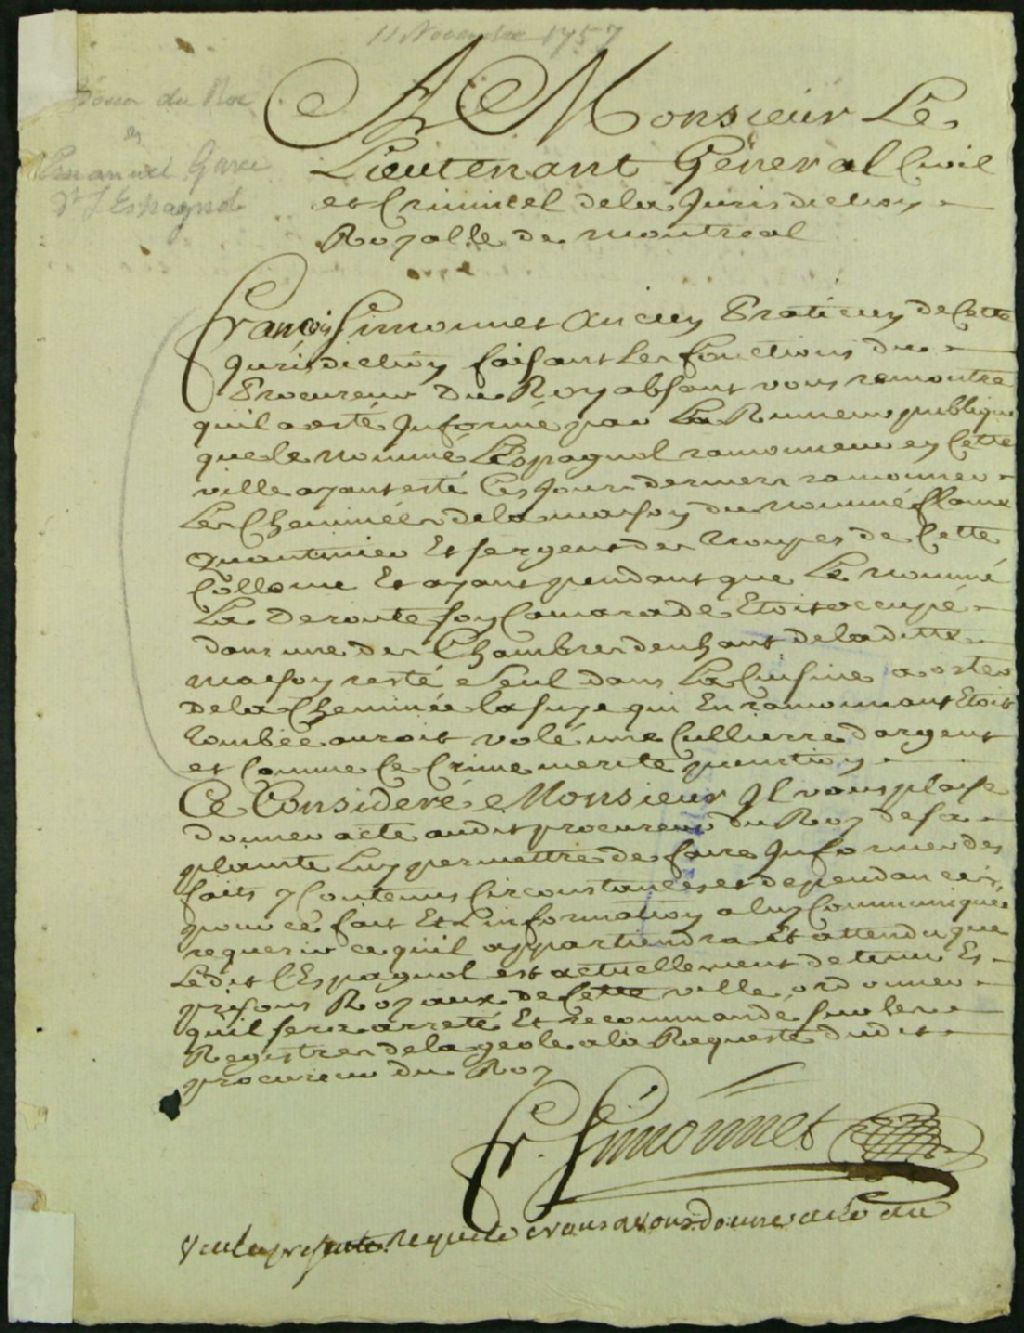 11 Novembre 1757
A Monsieur Le
Lieutenant General Civil
et Criminel de la Jurisdiction
Royalle de montreal
du Roy
Emanuel
dt l'Espagnol
françois Simonnet ancien Praticien de Cette
Jurisdiction faisant les fonctions du
Procureur du Roy absant vous remontre
quil a esté Informé par La Rumeur publique
que le nommé L'Espagnol ramonneur en Cette
ville ayant esté Ces Jours derniers ramonner
Les Cheminées de la maison du nommé
Et sergent des troupes de Cette
Collonie Et ayant pendant que Le nommé
La deroute son Camarade Etoit occupé
dans une des Chambres denhaut de la ditte
maison resté seul dans La Cuisine a oster
de la Cheminée la suye qui En ramonnant Etoit
tombée auroit volé une Cuilliere d'argent
et Comme Ce Crime merite punition
Ce Consideré Monsieur Il vous plaise
donner acte audit procureur du Roy de sa
plainte Luy permettre de faire Informer des
faits y Contenus Circonstances et dependances
pour ce fait Et L'information a luy Communiquée
requerir ce quil appartiendra Et attendu que
Ledit l'Espagnol est actuellement detenu Es
prisons Royaux de Cette ville ordonner
quil sera arreté Et recommandé sur les
Registres de la geole a la Requeste dudit
procureur du Roy
fr. Simonnet
Veu la presente Requete nous avons donné acte au